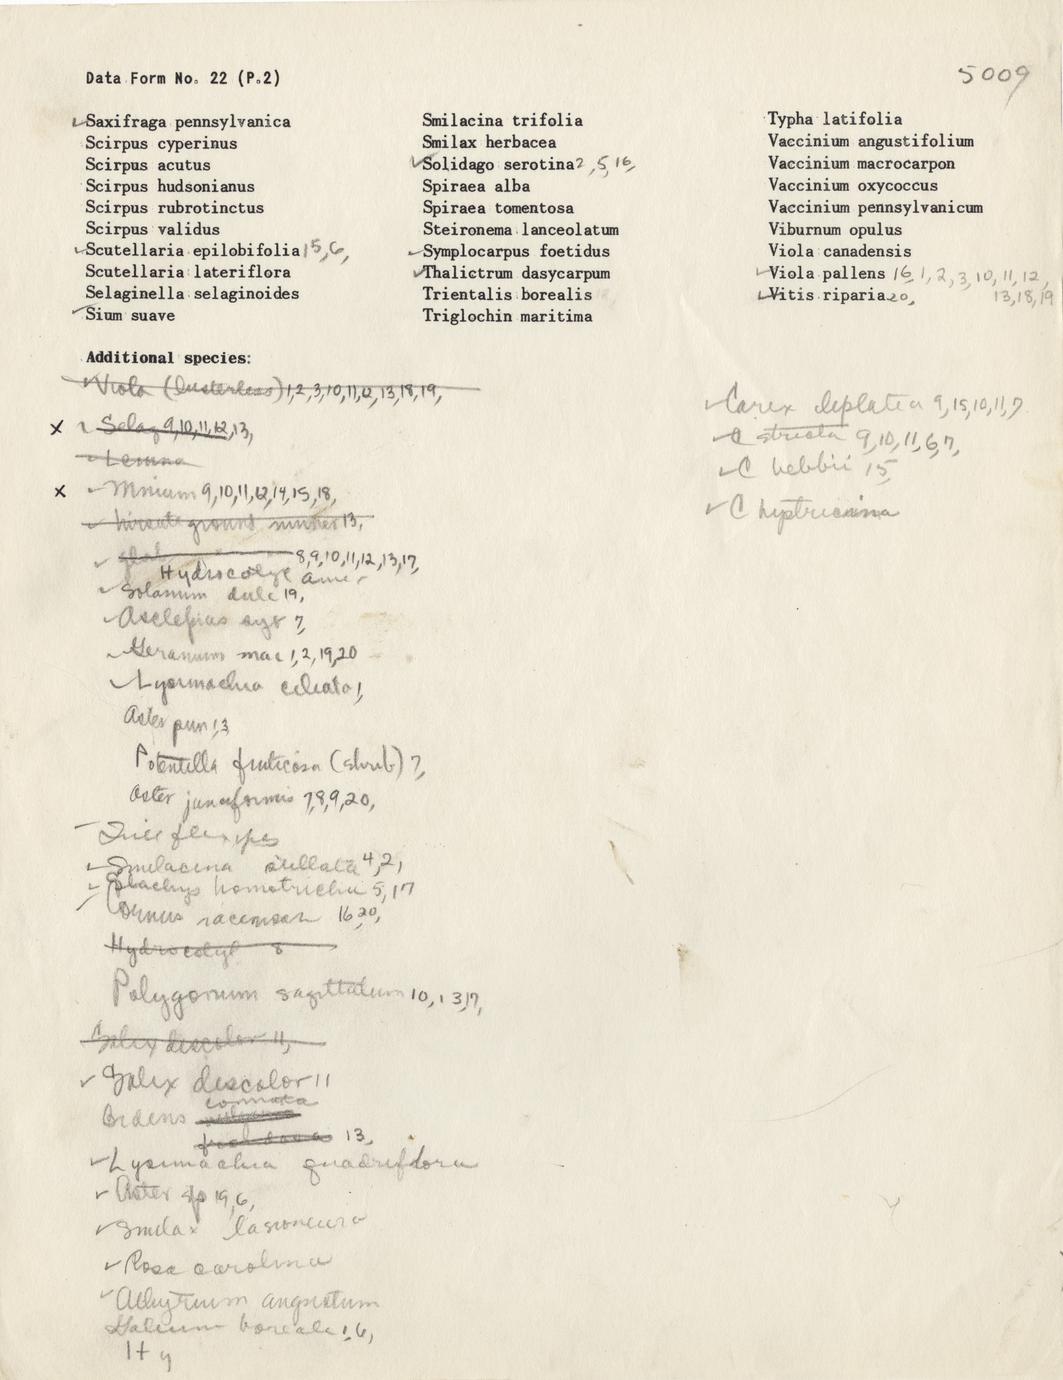 Data Form No. 22 (P.2)
5009
Saxifraga pennsylvanica
Scirpus cyperinus
Scirpus acutus
Scirpus hudsonianus
Scirpus rubrotinctus
Scirpus validus
Scutellaria epilobifolia 15,6,
Scutellaria lateriflora
Selaginella selaginoides
Sium suave
Smilacina trifolia
Smilax herbacea
Solidago serotina 2,5,16,
Spiraea alba
Spiraea tomentosa
Steironema lanceolatum
Symplocarpus foetidus
Thalictrum dasycarpum
Trientalis borealis
Triglochin maritima
Typha latifolia
Vaccinium angustifolium
Vaccinium macrocarpon
Vaccinium oxycoccus
Vaccinium pennsylvanicum
Viburnum opulus
Viola canadensis
Viola pallens 16,1,2,3,10,11,12,
13,18,19
Vitis riparia 20,
Additional species:
Viola (lusterless) 1,2,3,10,11,12,13,18,19,
x Selag 9,10,11,12,13,
Lemna
x Mnium 9,10,11,12,14,15,18,
hirsute ground 13,
8,9,10,11,12,13,17,
Hydrocotyle amer
Solanum dulc 19,
Asclepias syr 7,
Geranium mac 1,2,19,20
Lysimachia ciliata 1,
Aster pun 1,3
Potentilla fruticosa (shrub) 7,
Aster junciformis 7,8,9,20,
Smilacina stellata 4,2,
Stachys homotricha 5,17
Cornus racemosa 16,20,
Hydrocotyl 8
Polygonum sagittatum 10,13,17,
Salix discolor 11,
Salix discolor 11
connata
Bidens
frondosa 13,
Lysimachia quadriflora
Aster sp 19,6,
Smilax lasioneura
Rosa carolina
Athyrium angustum
Galium boreale 1,6,
Carex 9,15,10,11,7
C stricta 9,10,11,6,7,
C bebbii 15
C hystricina